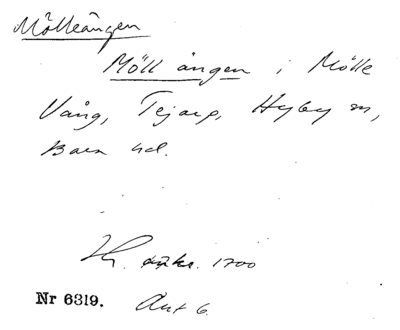 Mölleängen
Möll ängen i Mölle
Vång, Tejarp, Hyby sn,
Bara hd.
1700
Nr 6319. Akt 6.